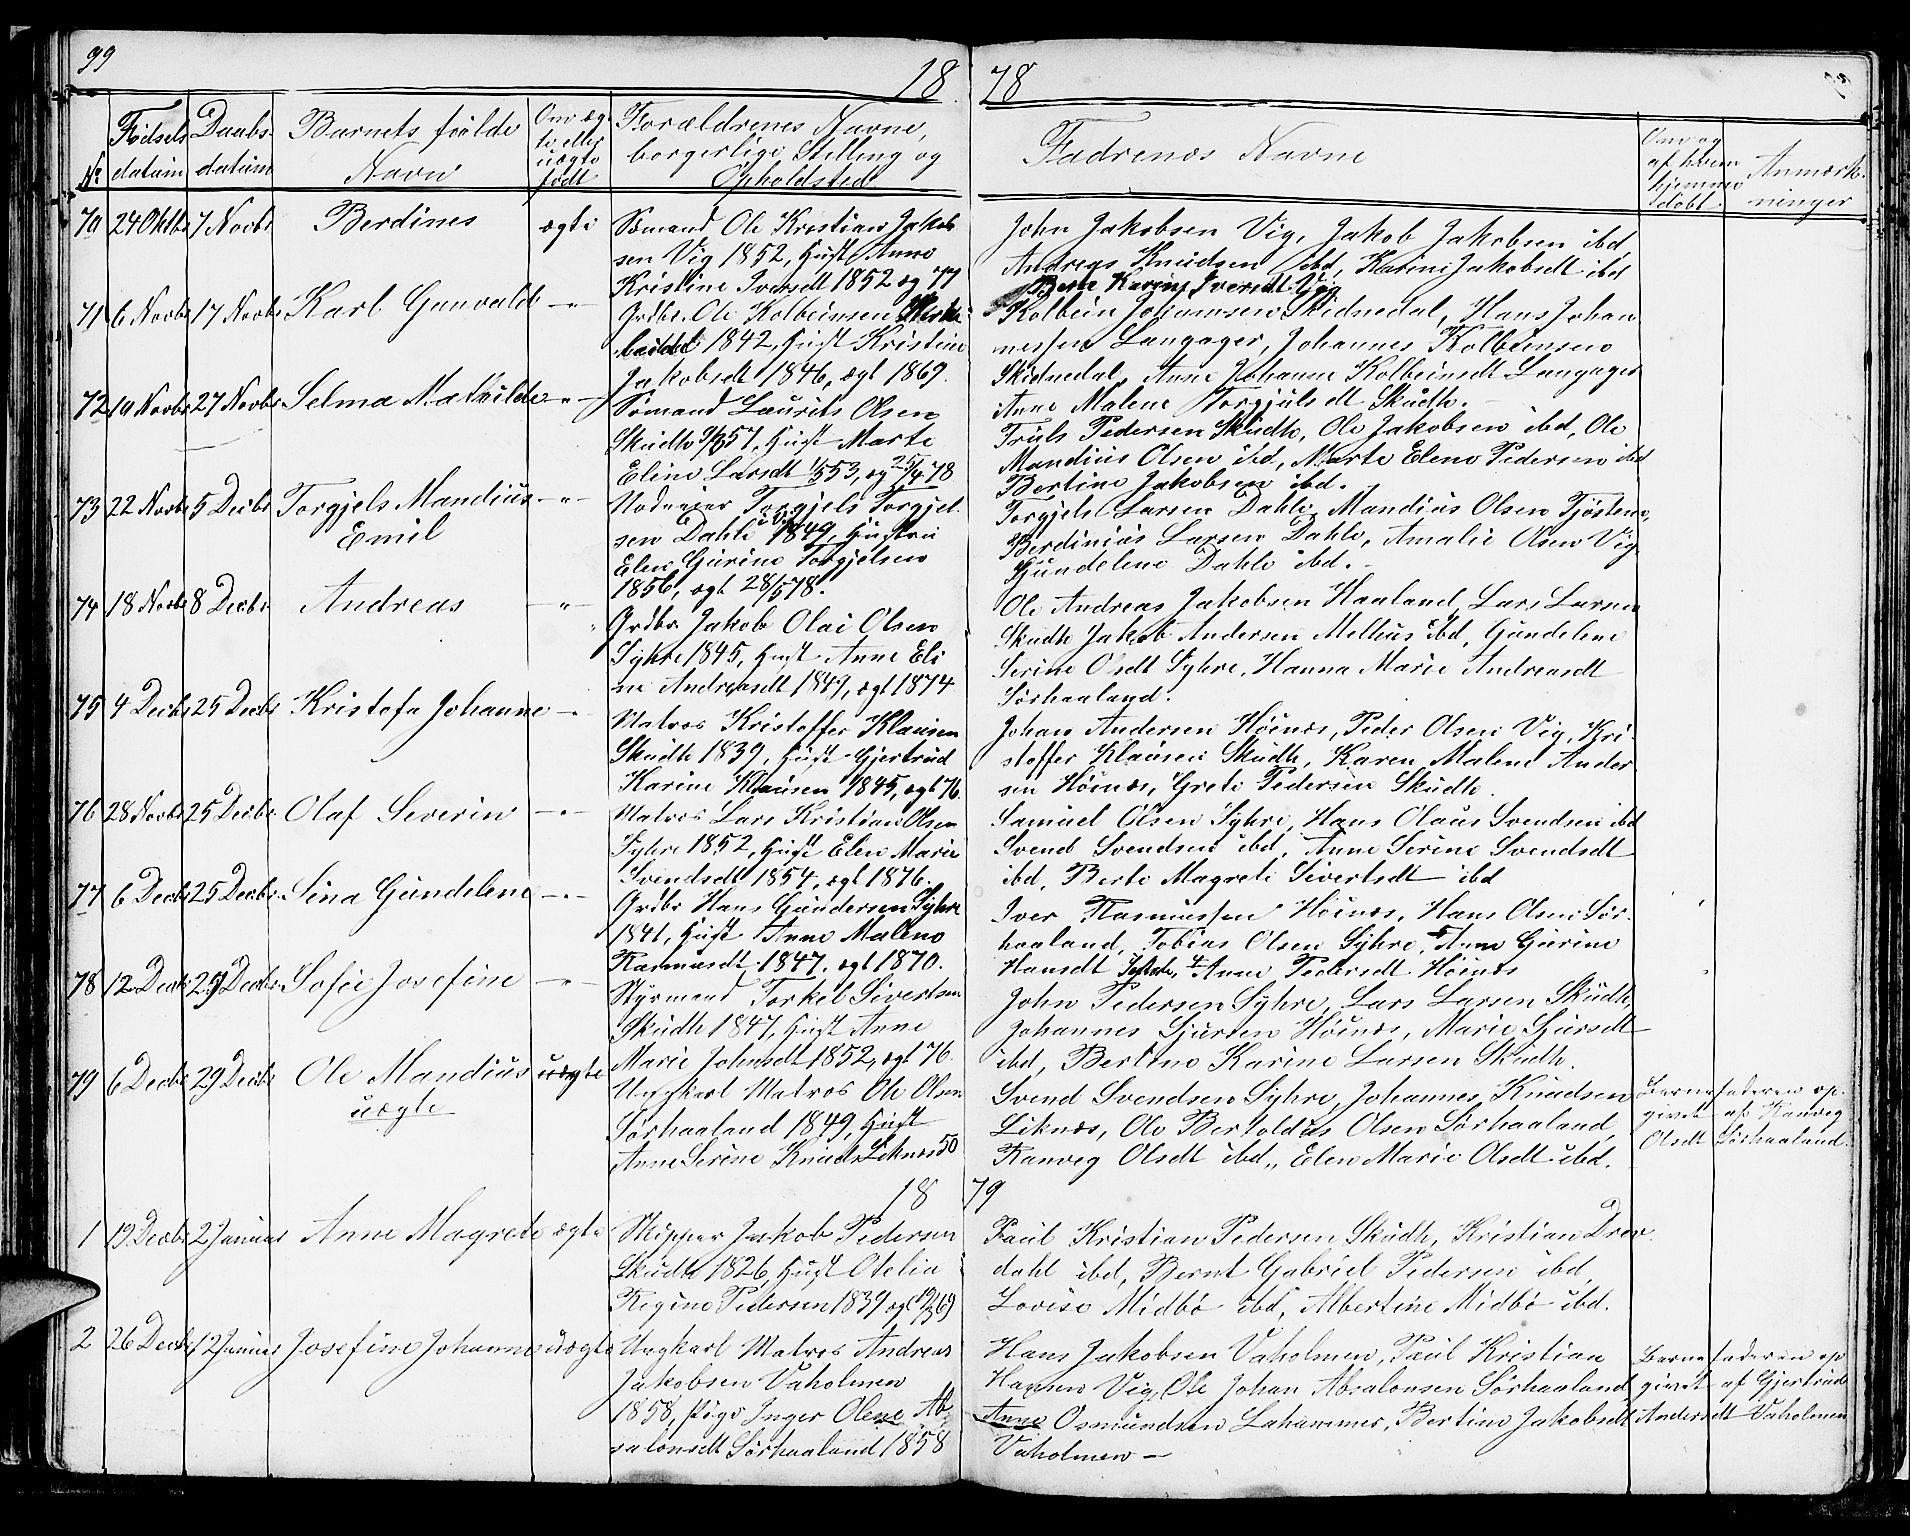 99
18 78
No Fødsels datum Daabs- datum Barnets fulde Navn Om æg- te eller uægte født Forældrenes Navne, borgerlige Stilling og Opholdsted Fadrenes Navne Om og af hvem hjemme døbt Anmærk- ninger
70 24 Oktbr 7 Novbr Berdines ægte Sømand Ole Kristian Jakob
sen Vig 1852, Hust Anne
Kristine Iversdt 1852 æg 77
John Jakobsen Vig, Jakob Jakobsen ibd,
Andreas Knudsen ibd, Karine Jakobsdt ibd
Berte Karine Iversdt Vig
71 6 Novbr 17 Novbr Karl Gunvald -"- Grdbr. Ole Kolbeinsen
1842, Hust Kristine
Jakobsdt 1846, ægt 1869.
Kolbein Johannesen Skidnedal, Hans Johan
nessen Langager, Johannes Kolbeinsen
Skidnedal, Anne Johanne Kolbeinsdt Langager
Anne Malene Torgjulsdt Skudh.
72 19 Novbr 27 Novbr Selma Mathilde -"- Sømand Laurits Olsen
Skudh 9/3 57, Hust Marte
Eline Larsdt 1/5 53, æg 25/4 78
Truls Pedersen Skudh, Ole Jakobsen ibd, Ole
Mandius Olsen ibd, Marte Elene Pedersen ibd
Bertine Jakobsen ibd.
73 22 Novbr 5 Decbr Torgjels Mandius Emil -"- Torgjels Torgjel
sen Dahle 1849, Hustru
Elen Gurine Torgjelsen
1856, ægt 28/5 78.
Torgjels Larsen Dahle, Mandius Olsen Tjøsteme,
Berdinius Larsen Dahle, Amalie Olsen Vig
Gundelene Dahle ibd.
74 18 Novbr 8 Decbr Andreas -"- Grdbr Jakob Olai Olsen
Syhre 1845, Hust Anne Eli
ne Andreasdt 1849, ægt 1874
Ole Andreas Jakobsen Haaland, Lars Larsen
Skudh Jakob Andersen Melhus ibd, Gundelene
Serine Olsdt Syhre, Hanna Marie Andreasdt
Sørhaaland.
75 4 Decbr 25 Decbr Kristofa Johanne -"- Matros Kristoffer Klausen
Skudh 1839, Hust Gjertrud
Karine Klausen 1845, ægt 76.
Johan Andersen Høinæs, Peder Olsen Vig, Kri-
stoffer Klausen Skudh, Karen Malene Ander
sen Høinæs, Grete Pedersen Skudh.
76 28 Novbr 25 Decbr Olaf Severin -"- Matros Lars Kristian Olsen
Syhre 1852, Hust Elen Marie
Svendsdt 1854, ægt 1876.
Samuel Olsen Syhre, Hans Olaus Svendsen ibd
Svend Svendsen ibd, Anne Serine Svendsdt
ibd, Berte Magrete Sivertsdt ibd
77 6 Decbr 25 Decbr Sina Gundelene -"- Grdbr Hans Gundersen Syhre
1841, Hust Anne Malene
Rasmusdt 1847, ægt 1870.
Iver Rasmussen Høinæs, Hans Olsen Sør-
haaland, Tobias Olsen Syhre, Anne Gurine
Hansdt Anne Pedersdt Høinæs
78 12 Decbr 29 Decbr Sofie Josefine -"- Styrmand Torkel Sivertsen
Skudh 1847, Hust Anne
Marie Johnsdt 1852, ægt 76.
John Pedersen Syhre, Lars Larsen Skudh,
Johannes Sjursen Høinæs, Marie Sjursdt
ibd, Bertine Karine Larsen Skudh.
79 6 Decbr 29 Decbr Ole Mandius uægte uægte Ungkarl Matros Ole Olsen
Sørhaaland 1849, Hust
Anne Serine Knuds Liknæs 50
Svend Svendsen Syhre, Johannes Knudsen
Liknæs, Ole Bertoldus Olsen Sørhaaland,
Ranveg Olsdt ibd., Elen Marie Olsdt ibd.
Barnefaderen op-
givet af Ranveg
Olsdt Sørhaaland.
18 79
1 19 Decbr 2 Januar Anne Magrete ægte Skipper Jakob Pedersen
Skudh 1826, Hust Otelia
Regine Pedersen 1839 ægt 69
Paul Kristian Pedersen Skudh, Kristian Dreu
dahl ibd, Bernt Gabriel Pedersen ibd,
Lovise Midbø ibd, Albertine Midbø ibd.
2 26 Decbr 12 Januar Josefine Johanne uægte Ungkarl Matros Andreas
Jakobsen Vaholmen
1858, Pige Inger Olene Ab-
salonsdt Sørhaaland 1858
Hans Jakobsen Vaholmen, Paul Kristian
Hansen Vig, Ole Johan Absalonsen Sørhaaland
Anne Osmundsen Lahammer, Bertine Jakobsdt
Vaholmen —
Barnefaderen op
givet af Gjertrud
Andersdt Vaholmen